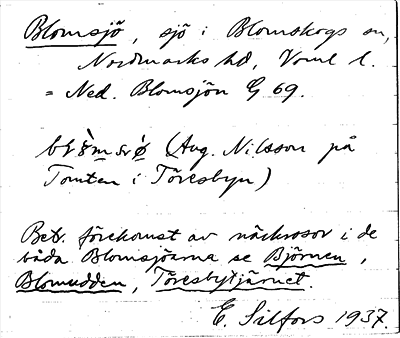 Blomsjö, sjö i Blomskogs sn,
Nordmarks hd, Verml l.
= Ned. Blomsjön G 69.
(Aug. Nilsson på
Tomten i Töresbyn)
Betr. förekomst av näckrosor i de
båda Blomsjöarna se Björnen,
Blomudden, Töresbytjärnet.
E. Silfors 1937.